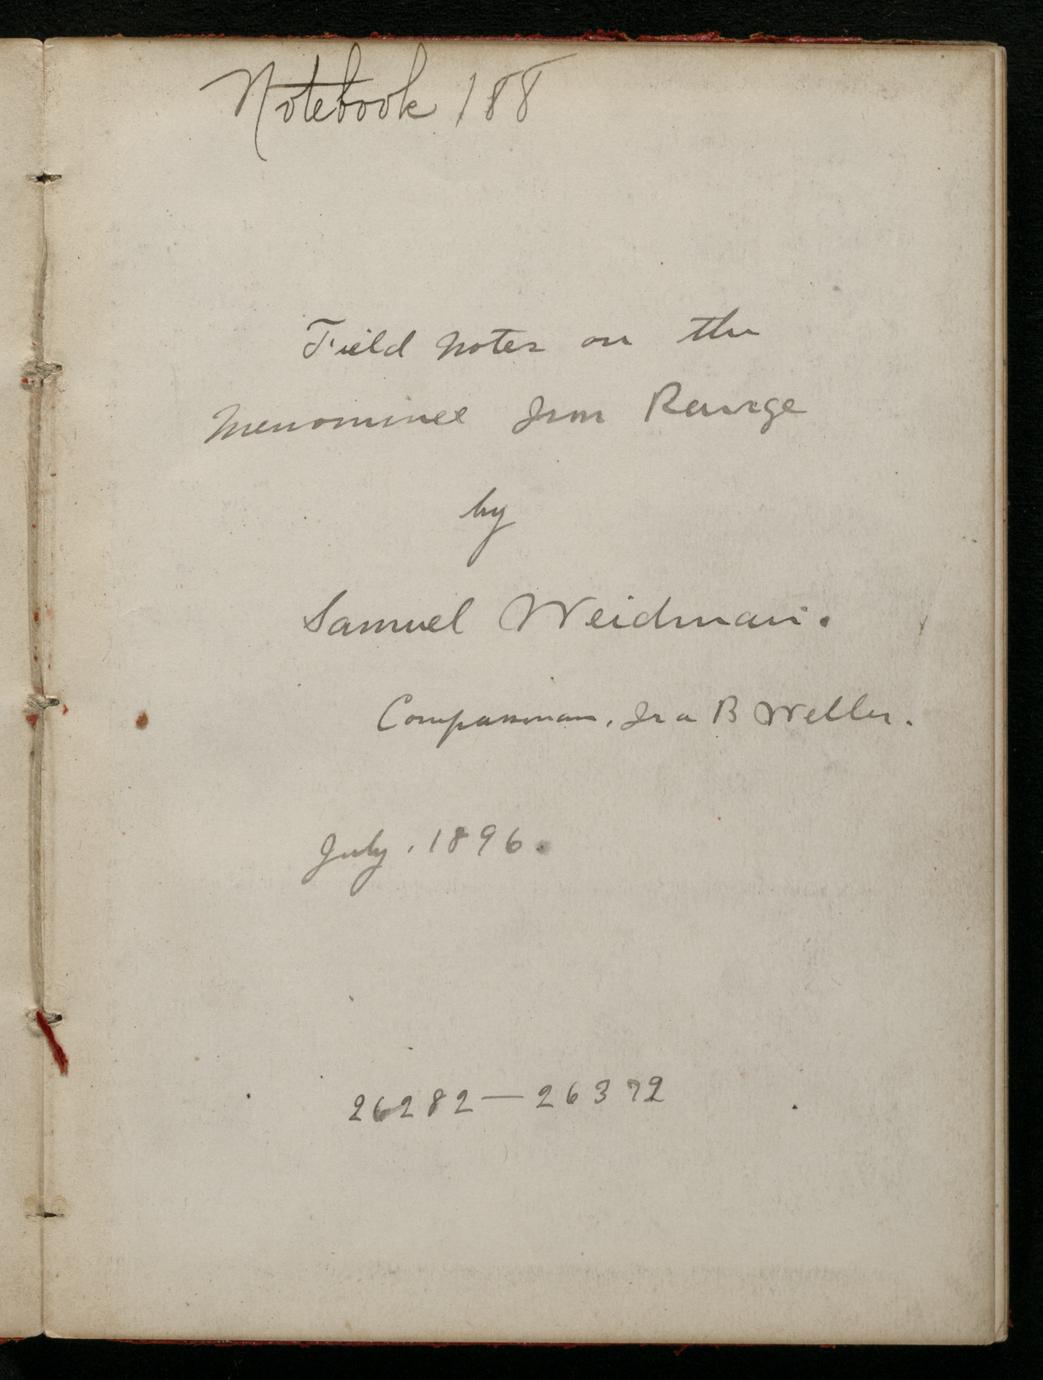 Notebook 188
Field notes on the
Menominee Iron Range
by
Samuel Weidman.
Compassman, Ira B Weller.
July, 1896.
26282—26372